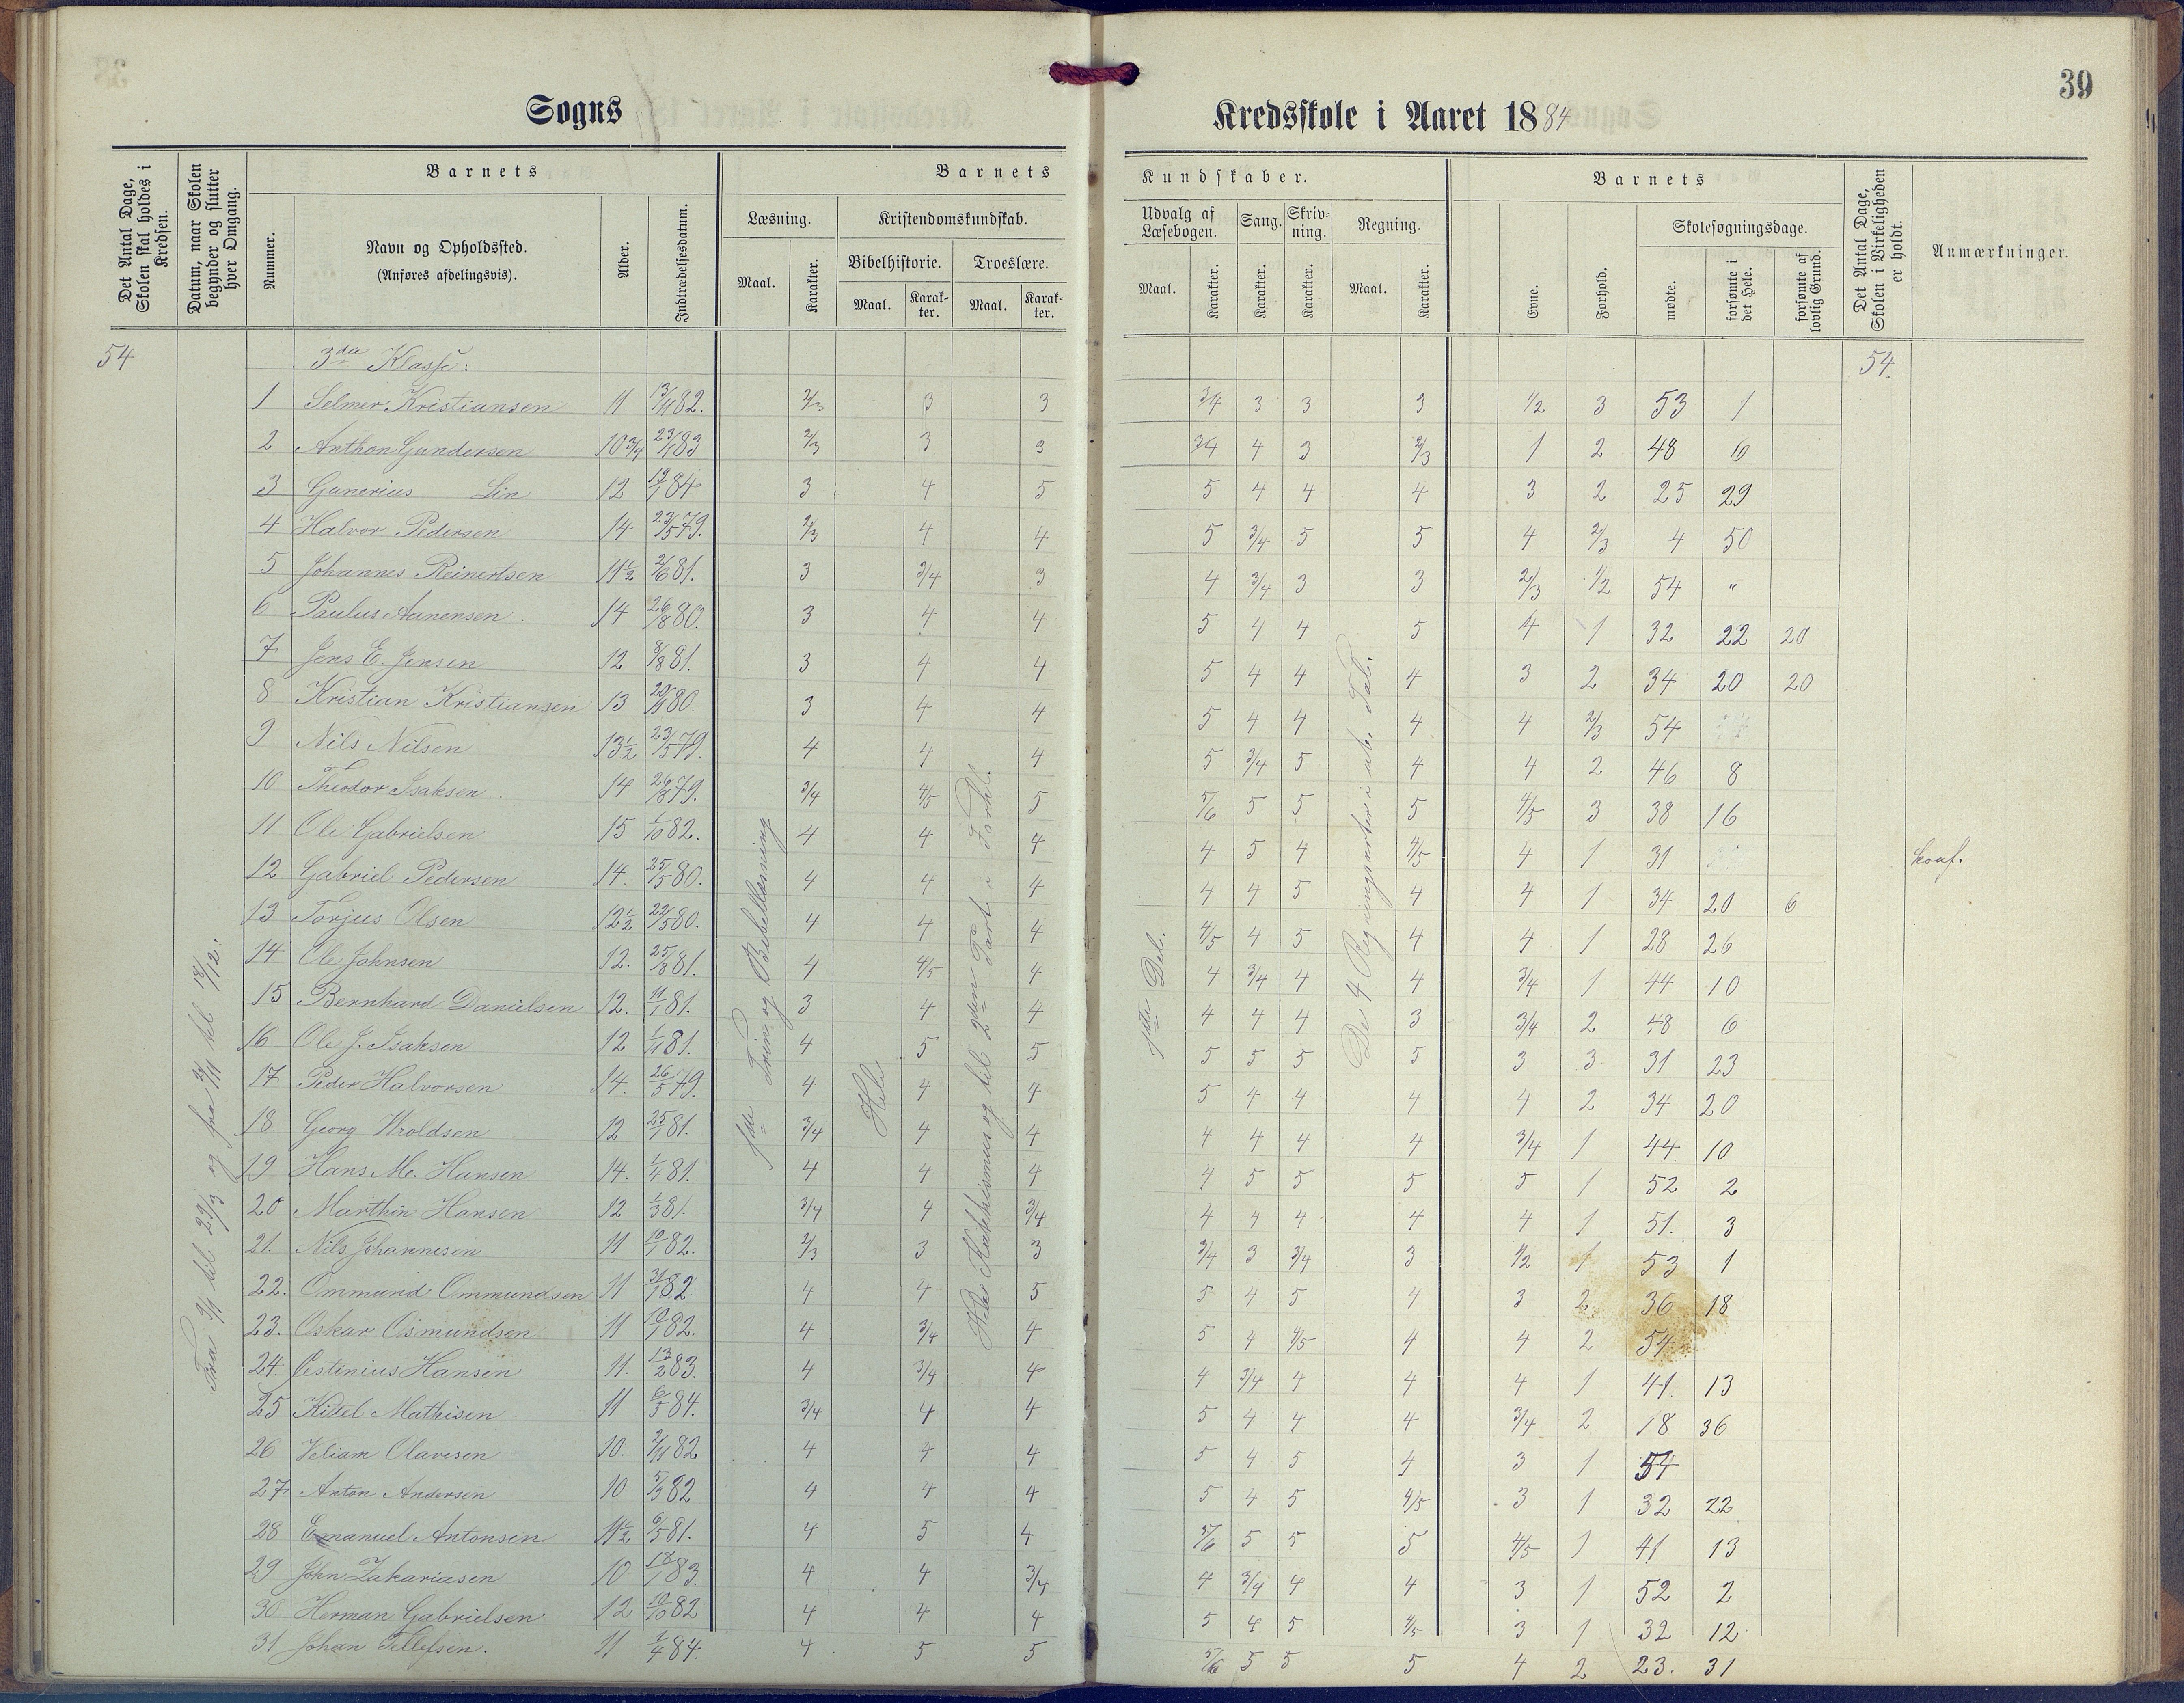 39
Sogns Kredsskole i Aaret 1884
Det Antal Dage, Skolen skal holdes i Kredsen.
Datum, naar Skolen begynder og slutter hver Omgang.
Barnets
Nummer.
Navn og Opholdssted.
(Anføres afdelingsvis).
Alder.
Indtrædelsesdatum.
Barnets Kundskaber.
Læsning.
Maal.
Karakter.
Kristendomskundskab.
Bibelhistorie.
Maal.
Karakter.
Troeslære.
Maal.
Karakter.
Udvalg af Læsebogen.
Maal.
Karakter.
Sang.
Karakter.
Skrivning.
Karakter.
Regning.
Maal.
Karakter.
Barnets
Evne.
Forhold.
Skolesøgningsdage.
mødte.
forsømte i det Hele.
forsømte af lovlig Grund.
Det Antal Dage, Skolen i Virkeligheden er holdt.
Anmærkninger.
54 3die Klasse: 54
1 Selmer Kristiansen 11. 13/11 82. 2/3 3 3 3/4 3 3 3 1/2 3 53 1
2 Anthon Gundersen 10 3/4 23/1 83 2/3 3 3 3/4 4 3 2/3 1 2 48 6
3 Gunerius Lin 12 19/1 84 3 4 5 5 4 4 4 3 2 25 29
4 Halvor Pedersen 14 23/5 79. 2/3 4 4 5 3/4 5 5 4 2/3 4 50
5 Johannes Reinertsen 11 1/2 2/6 81. 3 3/4 3 4 3/4 3 3 2/3 1/2 54 "
6 Paulus Aanensen 14 26/8 80. 3 4 4 5 4 4 5 4 1 32 22 20
7 Jens E. Jensen 12 8/8 81. 3 4 4 5 4 4 4 3 2 34 20 20
8 Kristian Kristiansen 13 80. 3 4 4 5 4 4 4 4 2/3 54
9 Nils Nilsen 13 1/2 23/5 79. 4 4 4 5 3/4 5 4 4 2 46 8
10 Theodor Isaksen 14 26/8 79. 3/4 4/5 5 5/6 5 5 5 4/5 3 38 16
11 Ole Gabrielsen 15 1/10 82. 4 4 4 4 5 4 4/5 4 1 31 konf.
12 Gabriel Pedersen 14. 25/5 80. 4 4 4 4 4 5 4 4 1 34 20 6
13 Torjus Olsen 12 1/2 22/5 80. 4 4 4 4/5 4 5 4 4 1 28 26
14 Ole Johnsen 12. 25/8 81. 4 4/5 4 4 3/4 4 4 3/4 1 44 10
15 Bernhard Danielsen 12. 11/1 81. 3 4 4 4 4 4 3 3/4 2 48 6
16 Ole J. Isaksen 12 1/11 81. 4 5 5 5 5 5 5 3 3 31 23
17 Peder Halvorsen 14. 26/5 79. 4 4 4 5 4 4 4 4 2 34 20
18 Georg Wroldsen 12 25/1 81. 3/4 4 4 4 4 4 4 3/4 1 44. 10
19 Hans M. Hansen 14. 1/4 81. 4 4 4 4 5 5 5 5 1 52 2
20 Marthin Hansen 12 1/3 81. 3/4 4 3/4 4 4 4 4 4 1 51. 3
21. Nils Johannesen 11 10/1 82. 2/3 3 3 3/4 3 3/4 3 1/2 1 53 1
22. Ommund Ommundsen 11 31/1 82 4 4 5 5 4 5 4 3 2 36 18
23. Oskar Osmundsen 11 10/1 82. 4 3/4 4 5 4 4/5 4 4 2 54
24. Estinius Hansen 11. 13/2 83. 4 3/4 4 4 3/4 4 4 4 1 41. 13
25 Kittel Mathisen 11 6/5 84. 3/4 4 4 5 4 4 4 3/4 2 18 36
26 Veliam Olavesen 10. 2/11 82 4 4 4 5 4 5 4 3 1 54
27 Anton Andersen 10 5/9 82 4 4 4 5 4 5 4/5 3 1 32 22
28 Emanuel Antonsen 11 1/2 6/5 81. 4 5 4 5/6 5 5 5 4/5 1 41 13
29 John Zakariasen 10 83. 4 4 3/4 4 3/4 4 4 3 1 52 2
30 Herman Gabrielsen 12 10/10 82 4 4 4 5 4 5 4/5 3 1 32 12
31 Johan Tellefsen. 11 1/4 84. 4 5 5 5/6 5 5 5 4 2 23. 31
Fra 9/1 til 29/3 og fra til 18/12.
1ste Trin og Bibellæsning
Hele
Hele Katekismus og til 2den Part i Forkl.
1ste Del.
De 4 Regningsarter i ub. Tal.